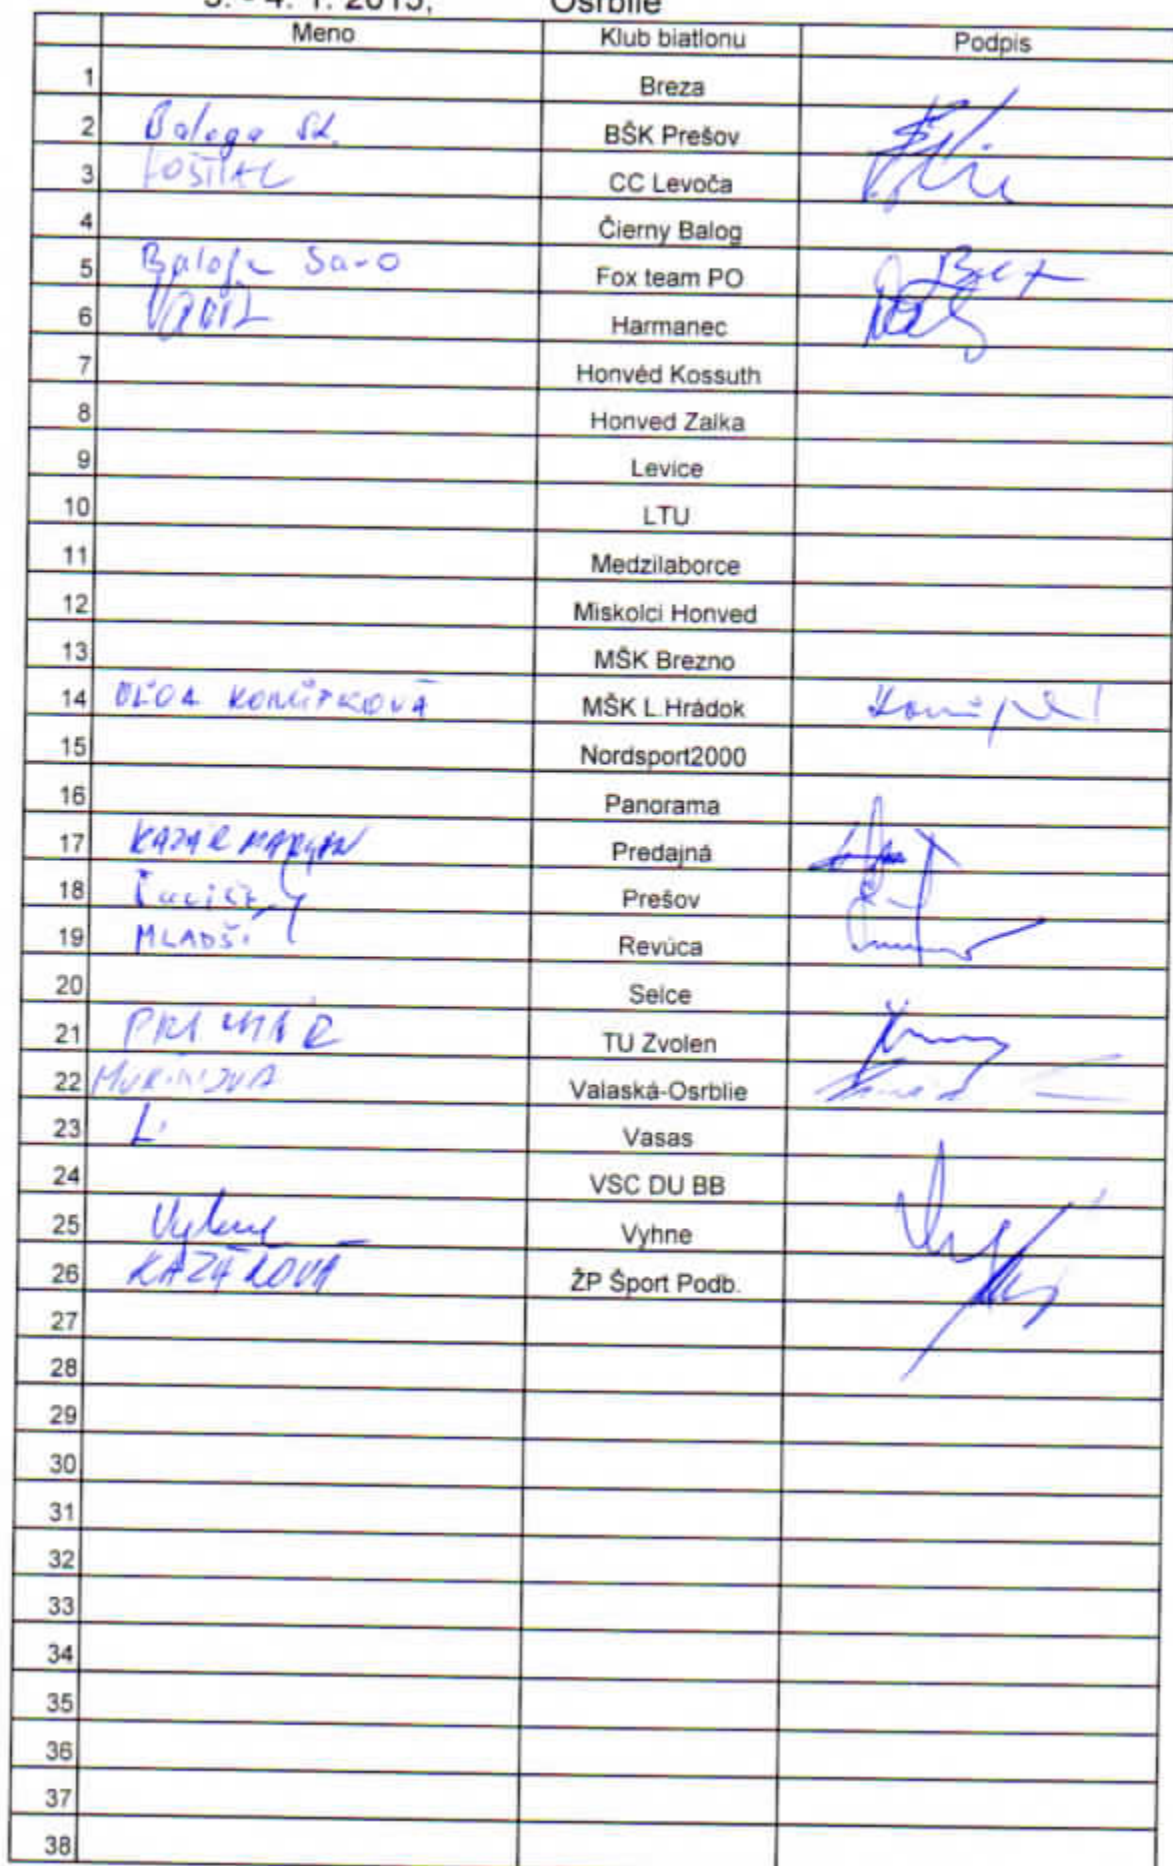 3. - 4. 1. 2015, Osrblie
Meno Klub biatlonu Podpis
1 Breza
2 Baloga St. BŠK Prešov
3 CC Levoča
4 Čierny Balog
5 Baloga Fox team PO
6 Harmanec
7 Honvéd Kossuth
8 Honved Zalka
9 Levice
10 LTU
11 Medzilaborce
12 Miskolci Honved
13 MŠK Brezno
14 MŠK L.Hrádok
15 Nordsport2000
16 Panorama
17 KAZÁR MARTIN Predajná
18 Prešov
19 MLADŠÍ Revúca
20 Selce
21 TU Zvolen
22 Valaská-Osrblie
23 Vasas
24 VSC DU BB
25 Vyhne Vyhne
26 KAZÁROVÁ ŽP Šport Podb.
27
28
29
30
31
32
33
34
35
36
37
38